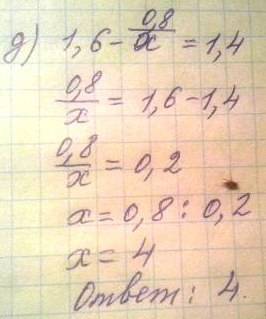 д) 1,6 - 0,8/x = 1,4
0,8/x = 1,6 - 1,4
0,8/x = 0,2
x = 0,8 : 0,2
x = 4
Ответ: 4.